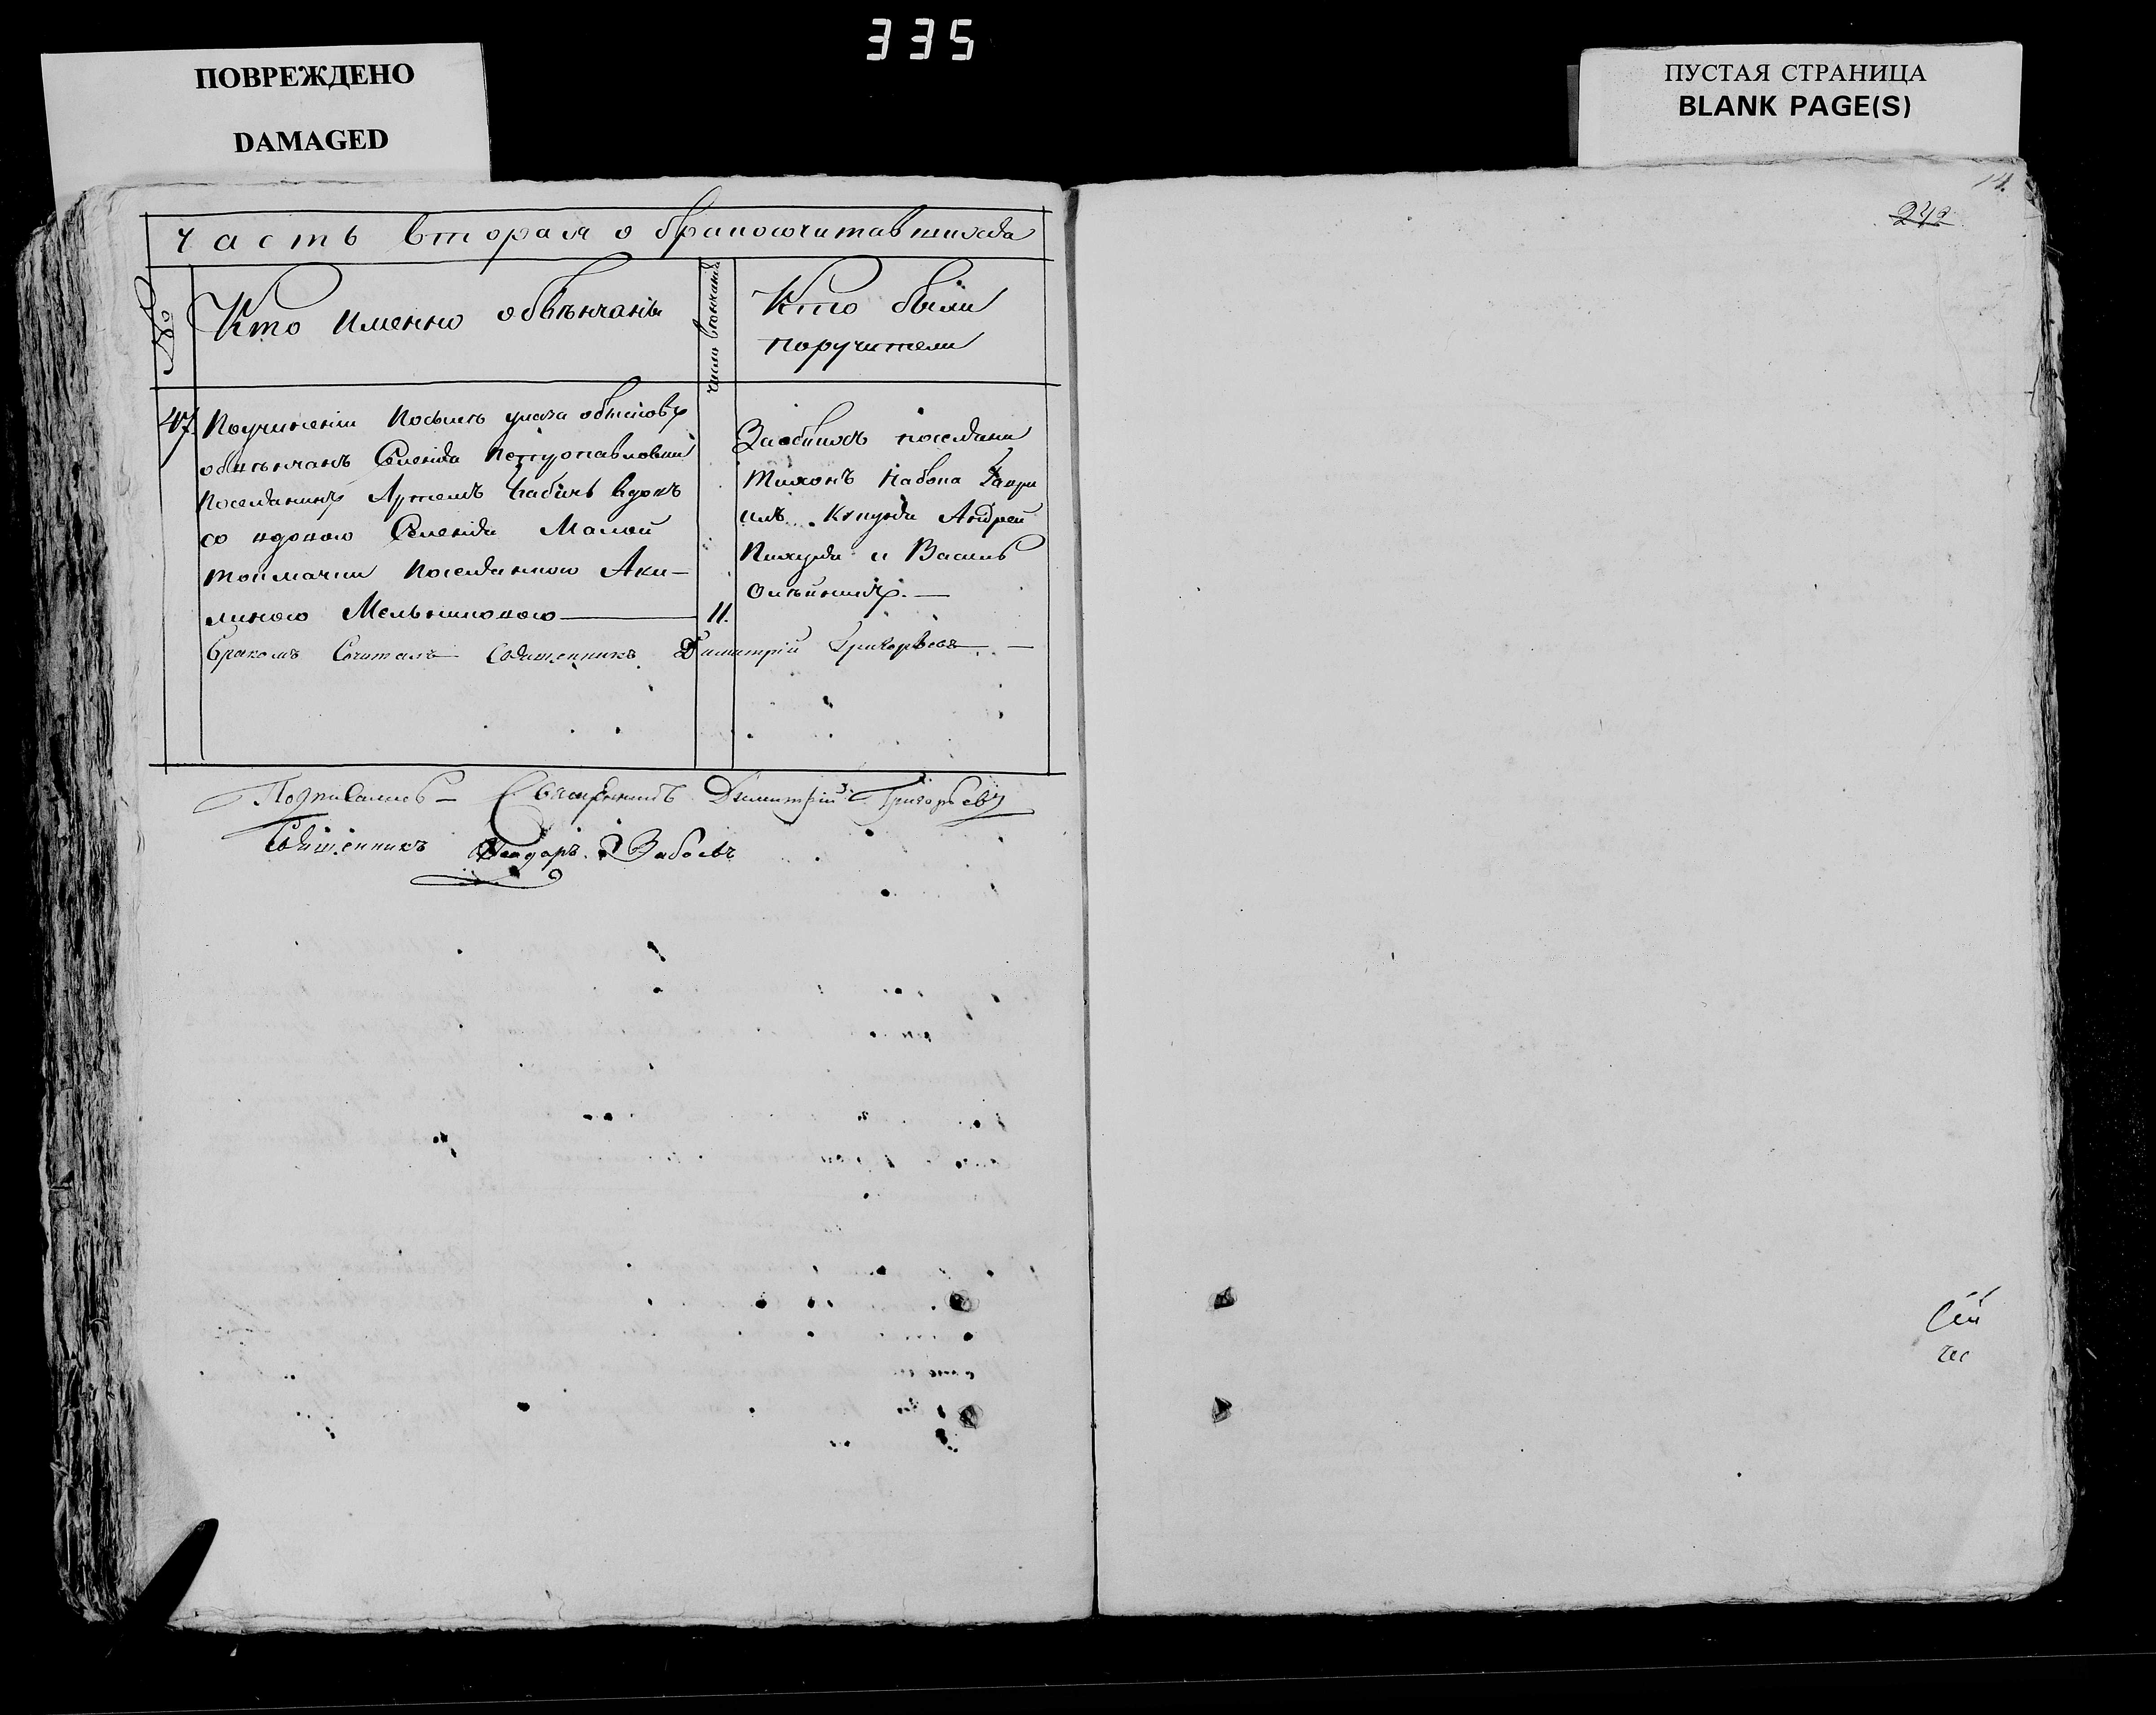 335
ПОВРЕЖДЕНО
DAMAGED
ПУСТАЯ СТРАНИЦА
BLANK PAGE(S)
14.
242
часть вторая о бракосочитавшихся
№
Кто именно обвѣнчаны
число венчания
Кто были
поручители
47. Поучинении Посылъ указа обысковъ
обвѣнчанъ Селенія Петропавловки
поселянинъ Артемъ Бабичъ вдовъ
со вдовою Селенія Малой
токмачки поселянкою Аки–
линою Мельниковою 11.
Заобоихъ поселяни
Тихонъ Набока Гаври
илъ Андрей
и Василь
Олѣйникъ.
Бракомъ Сочиталъ Священникъ Димитрій Григорьевъ
Подписались Священникъ Димитрій Григорьевъ
Священникъ Забоевъ